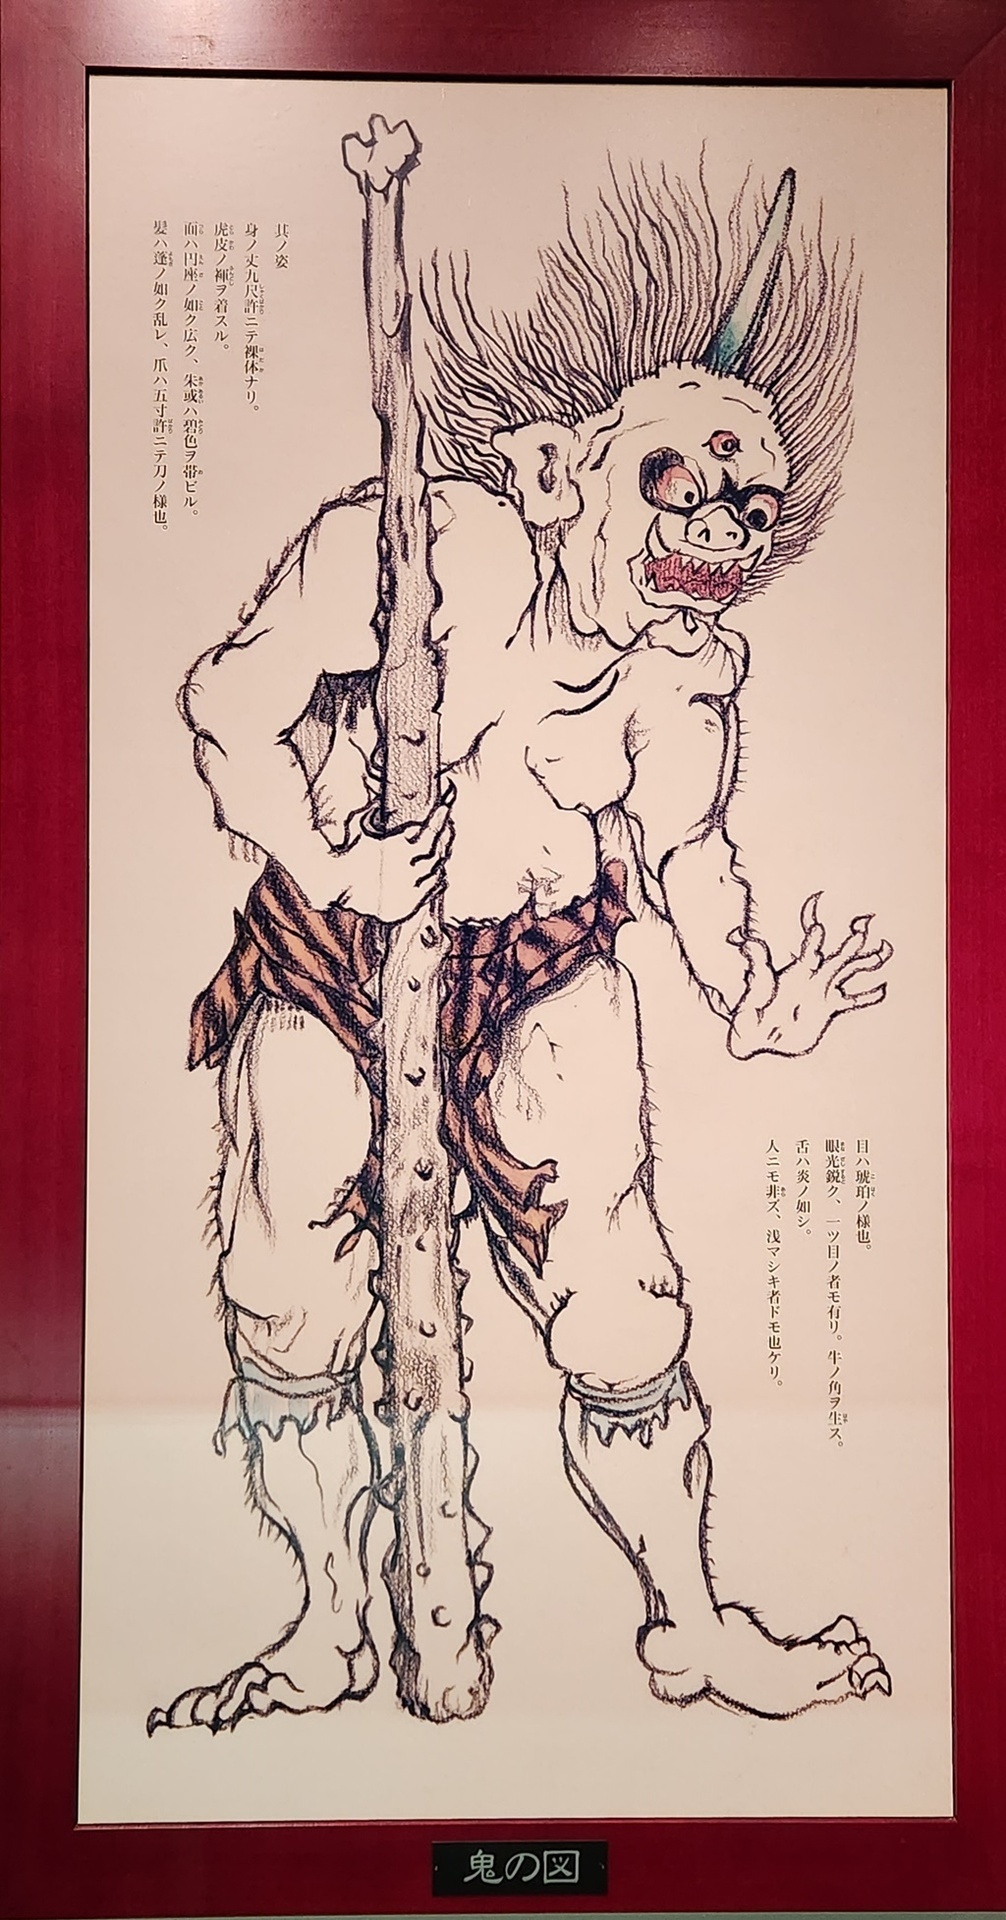 其ノ姿
身ノ丈九尺許ニテ裸体ナリ。
虎皮ノ褌ヲ着スル。
面ハ円座ノ如ク広ク、朱或ハ碧色ヲ帯ビル。
髪ハ蓬ノ如ク乱レ、爪ハ五寸許ニテ刀ノ様也。
目ハ琥珀ノ様也。
眼光鋭ク、一ツ目ノ者モ有リ。牛ノ角ヲ生ス。
舌ハ炎ノ如シ。
人ニモ非ズ、浅マシキ者ドモ也ケリ。
鬼の図